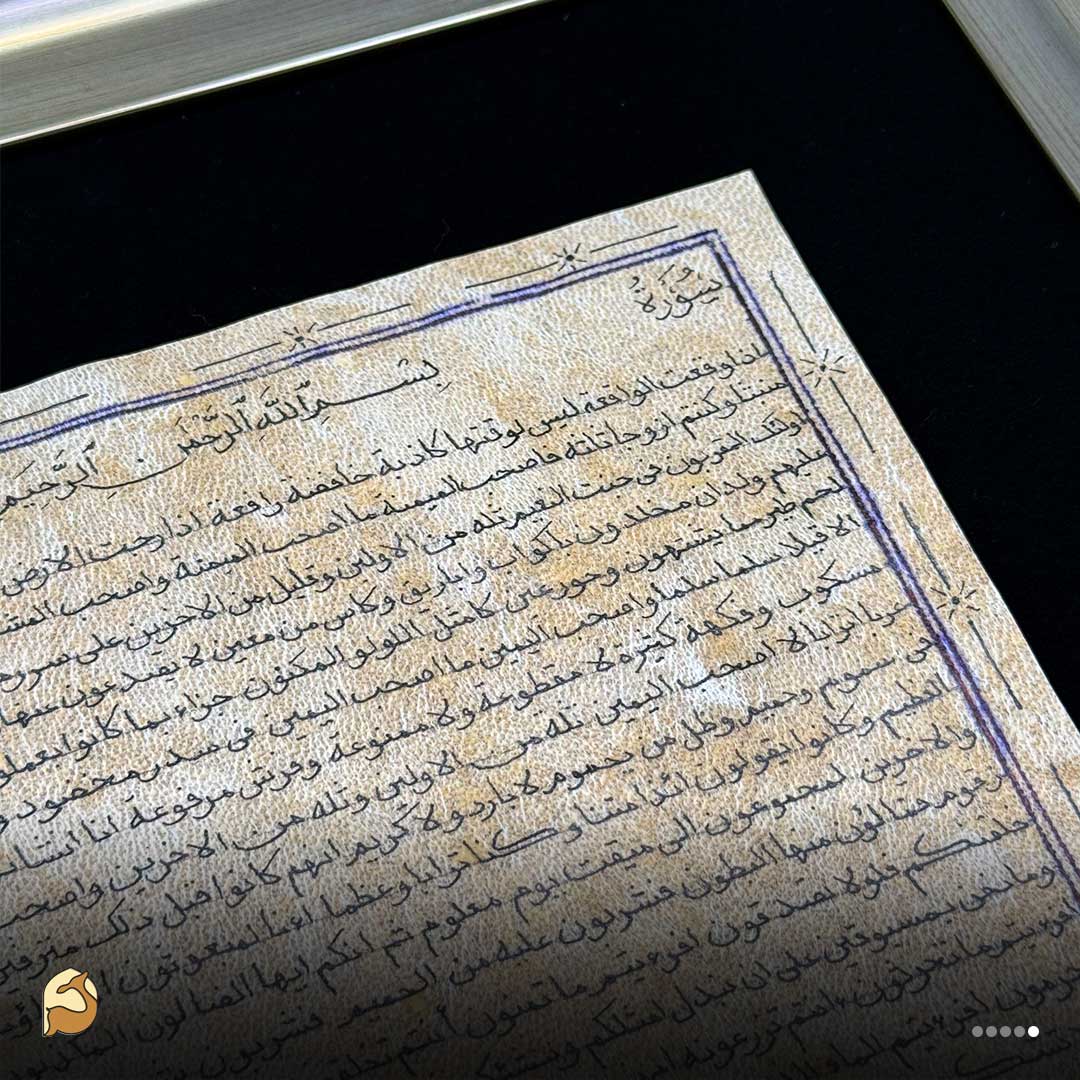 سُورَةُ
بِسْمِ ٱللَّهِ ٱلرَّحْمَٰنِ ٱلرَّحِيمِ
اذا وقعت الواقعة ليس لوقعتها كاذبة خافضة رافعة اذا رجت الارض
منبثا وكنتم ازوجا ثلثة فاصحب الميمنة ما اصحب الميمنة واصحب
اولئك المقربون فى جنت النعيم ثلة من الاولين وقليل من الاخرين على سرر
عليهم ولدان مخلدون باكواب واباريق وكاس من معين لا يصدعون عنها
لحم طير مما يشتهون وحور عين كامثل اللولو المكنون جزاء بما كانوا يعملو
الا قيلا سلما سلما واصحب اليمين ما اصحب اليمين فى سدر مخضود و
مسكوب وفكهة كثيرة لا مقطوعة ولا ممنوعة وفرش مرفوعة انا انشانـ
عربا اترابا لا صحب اليمين ثلة من الاولين وثلة من الاخرين واصحب
فى سموم وحميم وظل من يحموم لا بارد ولا كريم انهم كانوا قبل ذلك مترفين
العظيم وكانوا يقولون ائذا متنا وكنا ترابا وعظما اءنا لمبعوثون
والاخرين لمجموعون الى ميقت يوم معلوم ثم انكم ايها الضالون
زقوم فمالئون منها البطون فشربون عليه من الحميم فشربون
خلقنكم فلولا تصدقون افرءيتم ما تمنون ءانتم
وما نحن بمسبوقين على ان نبدل امثلكم
افرءيتم ما تحرثون ءانتم تزرعونه
افرءيتم الماء